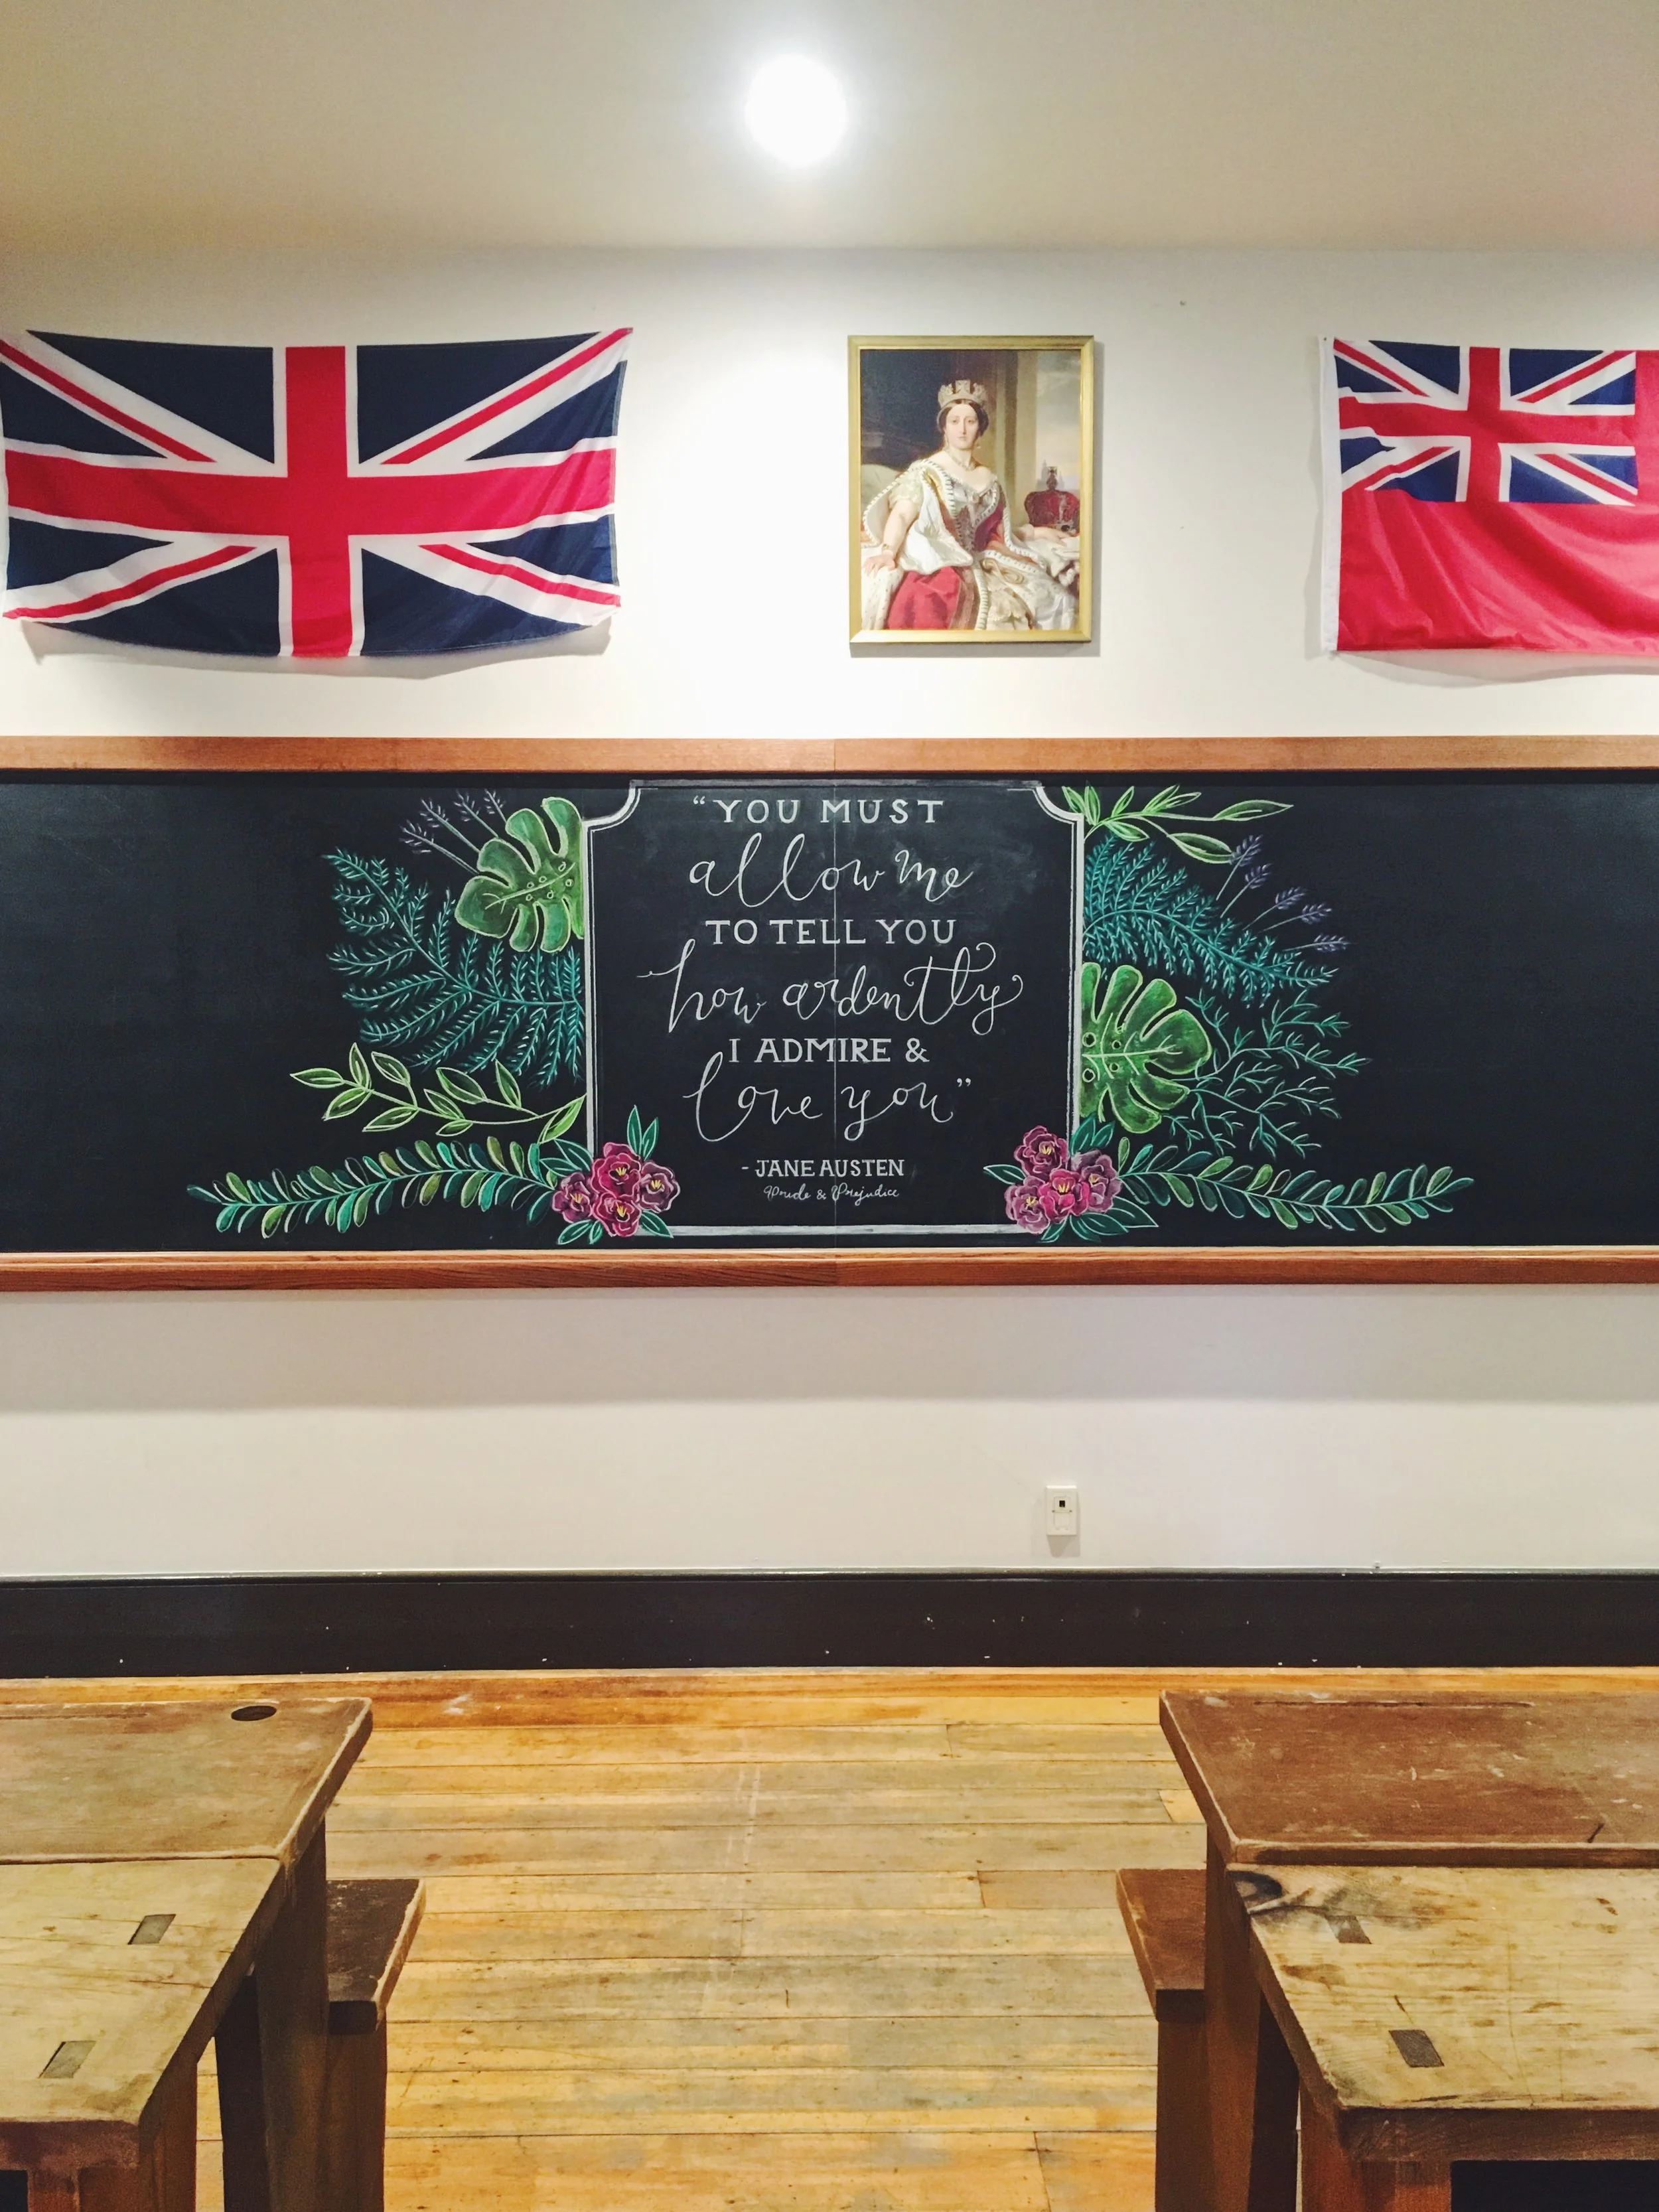 "YOU MUST
allow me
TO TELL YOU
how ardently
I ADMIRE &
love you"
- JANE AUSTEN
Pride & Prejudice